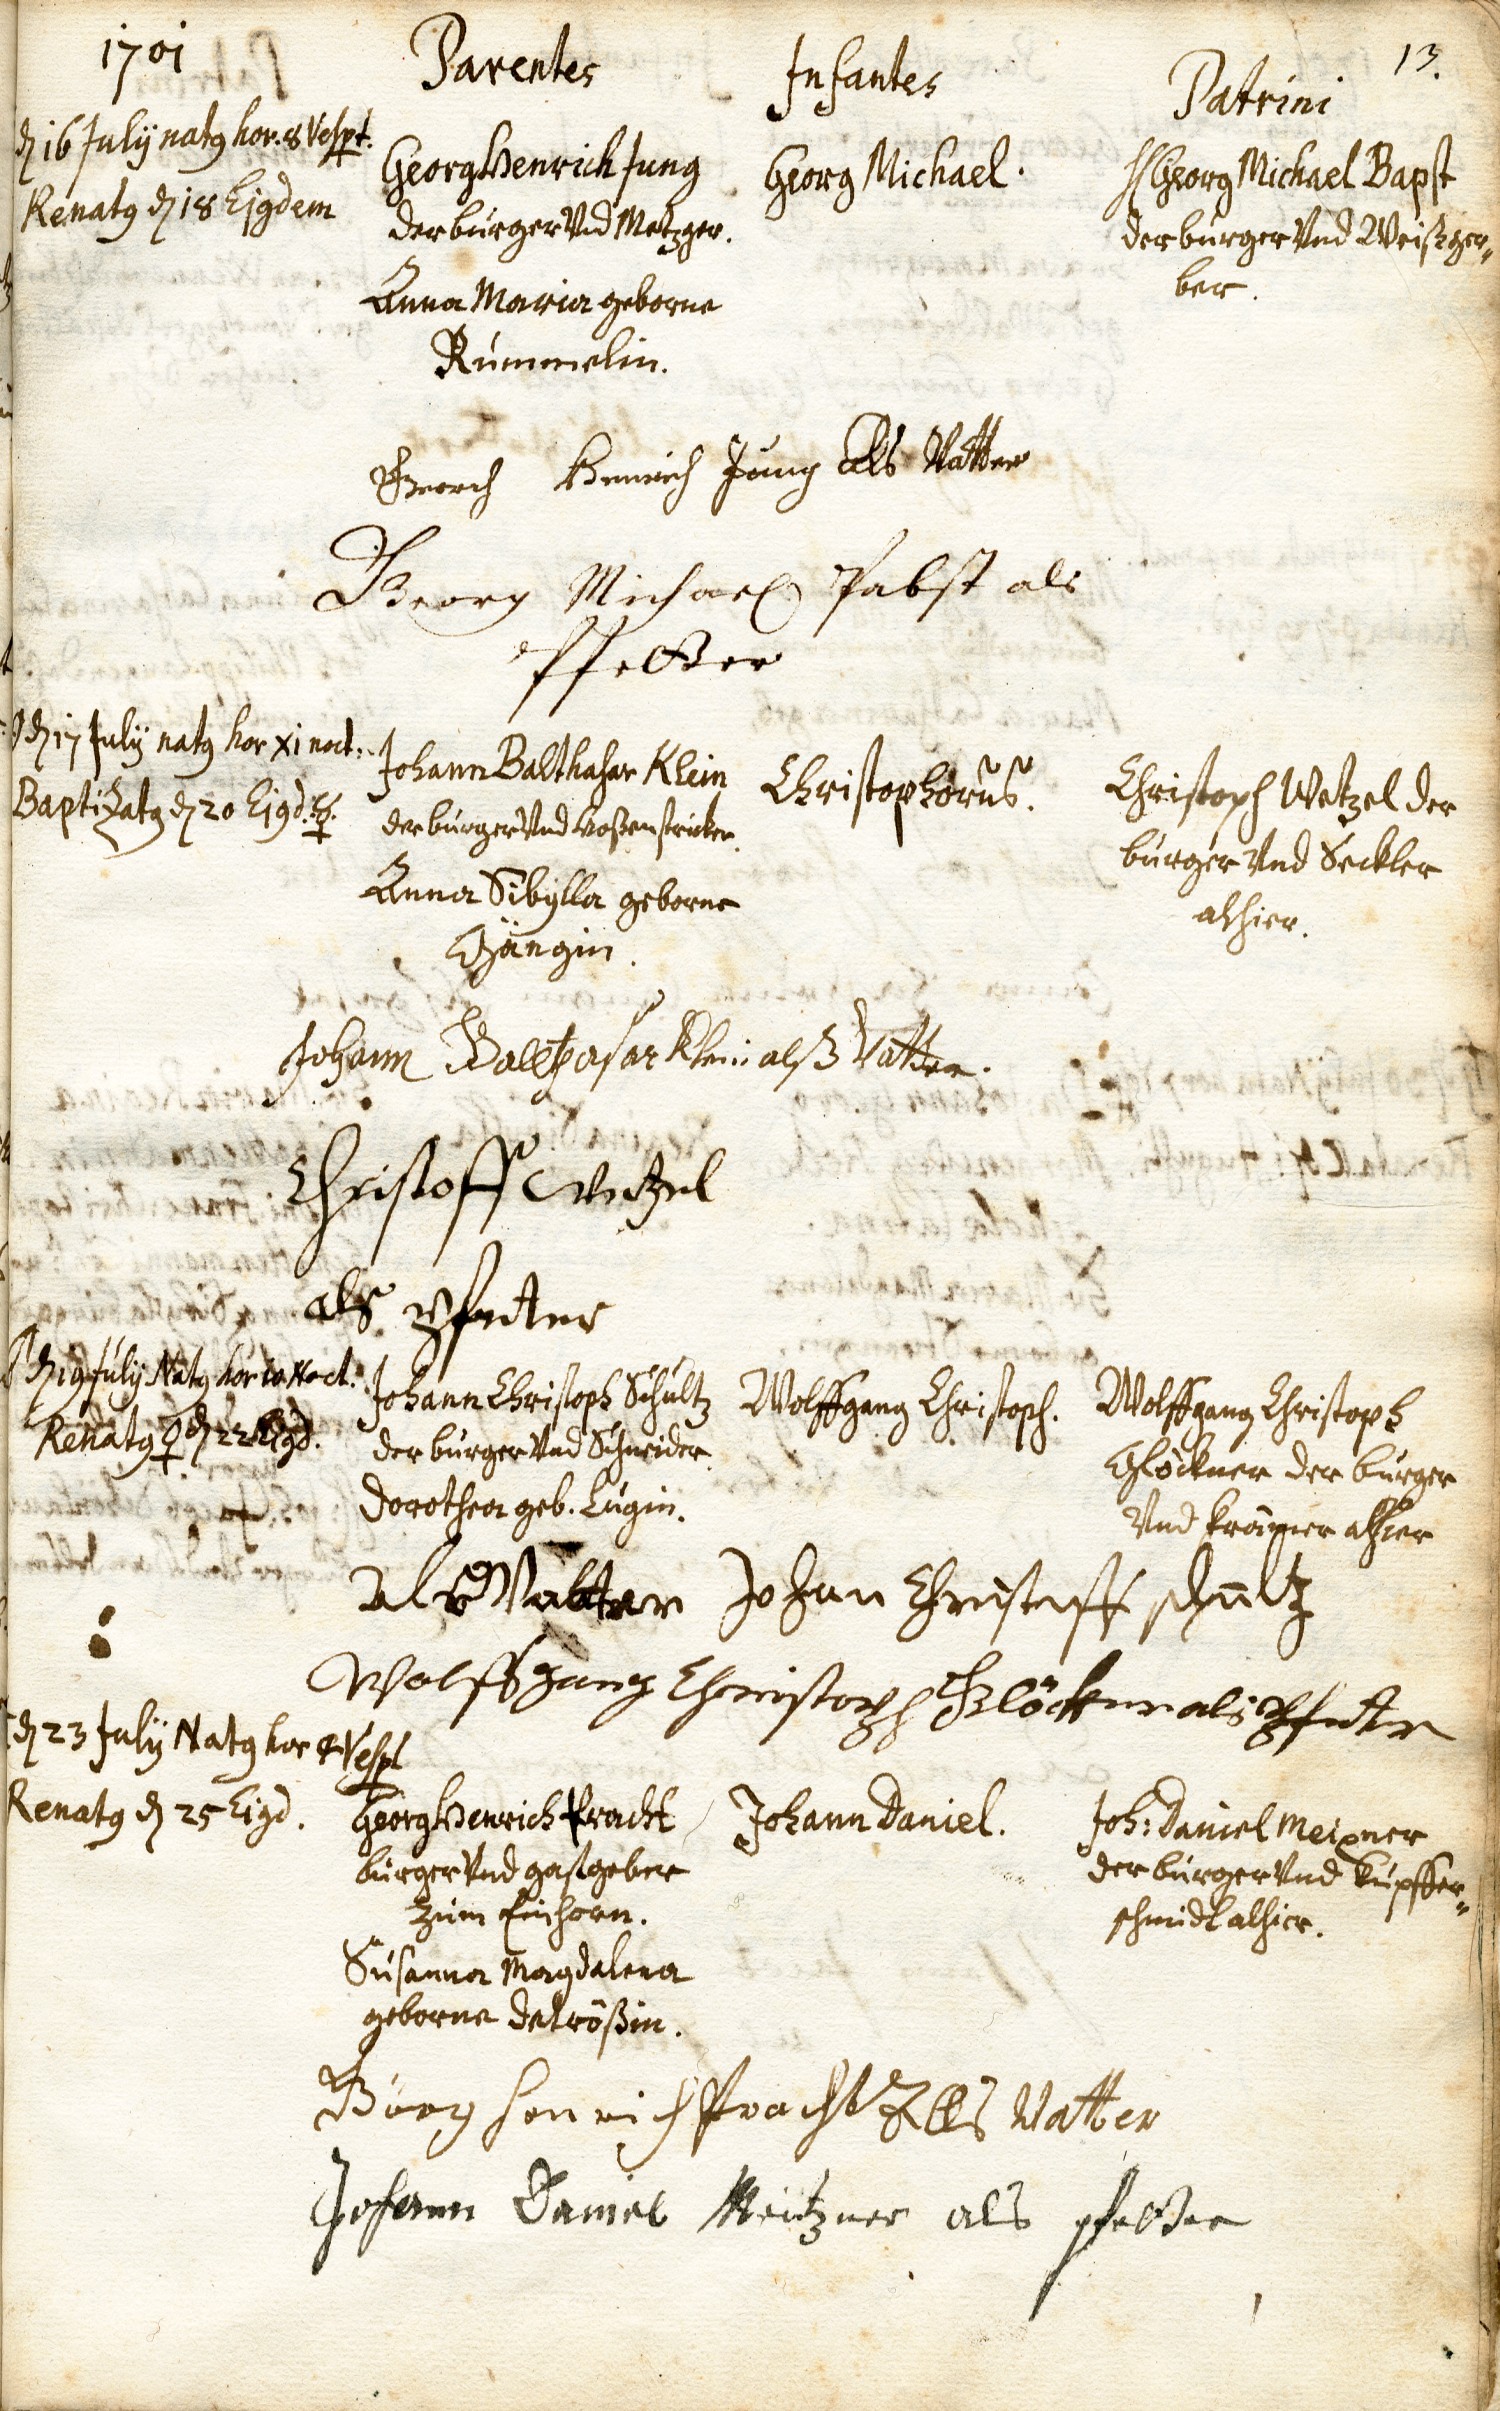 1701
Parentes
Infantes
Patrini
13.
d 16 Julij natg hor. 8 Vespt.
Renatg d 18 Ejgdem
Georg Henrich Jung
der burger Vnd Metzger.
Anna Maria geborne
Rümmelin.
Georg Michael.
H Georg Michael Bapst
der burger Vnd Weißger„
ber.
Georch Henrich Jung Als Vatter
Georg Michael Pabst als
Pfetter
d 17 Julij natg hor XI noct.
Baptizatg d 20 Ejgd. ☿.
Johann Balthasar Klein
der burger Vnd Hoßenstricker.
Anna Sibylla geborne
Gängin.
Christophorus.
Christoph Wetzel der
burger Vnd Seckler
alhier.
Johann Balthasar Klein alß Vatter.
Christoff Wetzel
als Pfetter
d 19 Julij Natg hor 10 Noct.
Renatg ♀ d 22 Ejgd.
Johann Christoph Schultz
der burger Vnd Schneider
Dorothea geb. Lugin.
Wolffgang Christoph.
Wolffgang Christoph
Glöckner der burger
Vnd krämer alhier
Als Vatter Johan Christoff schultz
Wolffgang Christoph Glöckner als Pfetter
d 23 Julij Natg hor 4 Vespt
Renatg d 25 Ejgd.
Georg Henrich Pracht
burger Vnd gastgeber
zum Einhorn.
Susanna Magdalena
geborne Detrößin.
Johann Daniel.
Joh: Daniel Meixner
der burger Vnd Kupffer„
schmidt alhier.
Görg Henrich Pracht Alls Vatter
Johann Daniel Meitzner als pfetter